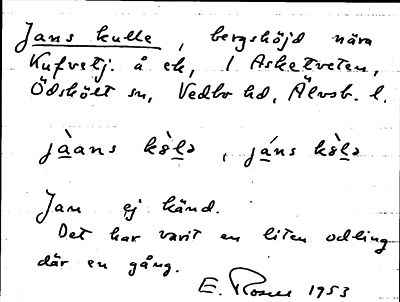 Jans kulle, bergshöjd nära
Kufvetj. å ek, 1 Asketveten,
Ödskölt sn, Vedbo hd, Älvsb. l.
jàans kö̀lə, jáns kö̀lə
Jan ej känd.
Det har varit en liten odling
där en gång.
E. Rosell 1953